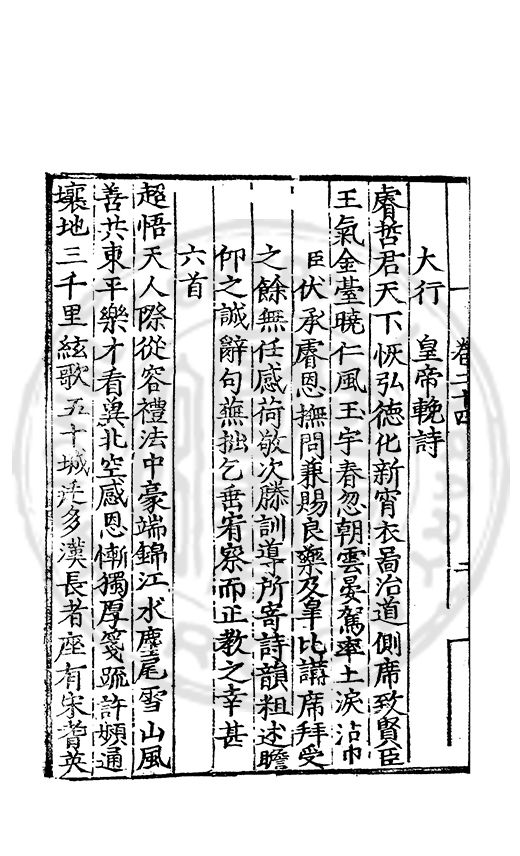 卷二十四
大行 皇帝輓詩
睿哲君天下恢弘德化新宵衣啚治道側席致賢臣
王氣金臺曉仁風玉宇春忽朝雲晏駕率土淚沾巾
臣伏承睿恩撫問兼賜良藥及皐比講席拜受
之餘無任感荷敬次滕訓導所寄詩韻粗述瞻
仰之誠辭句蕪拙乞垂宥察而正教之幸甚
六首
超悟天人際從容禮法中豪端錦江水麈尾雪山風
善共東平樂才看兾北空感恩慚獨厚箋疏許頻通
壤地三千里絃歌五十城 多漢長者座有宋耆英